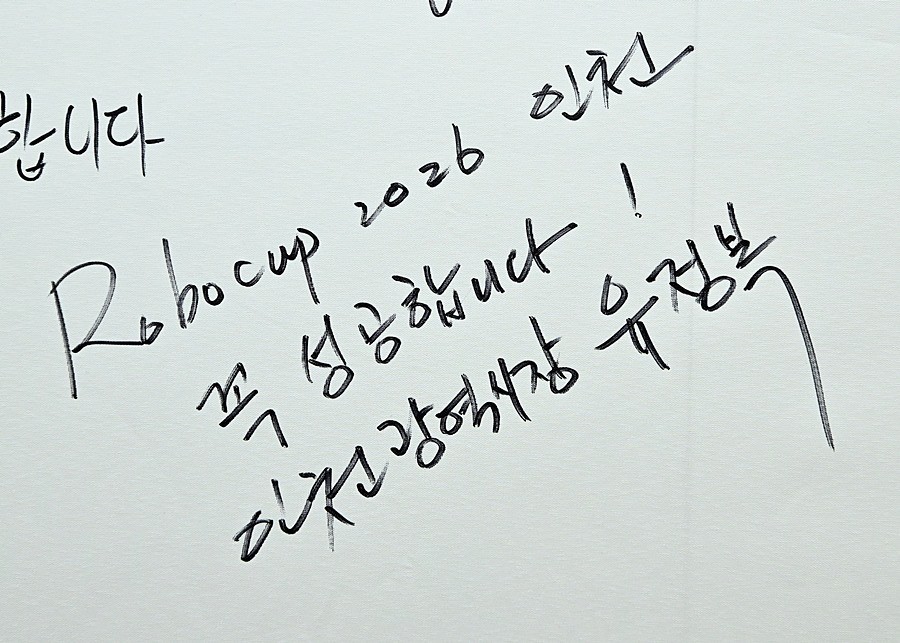 합니다
Robocup 2026 인천
꼭 성공합니다!
인천광역시장 유정복